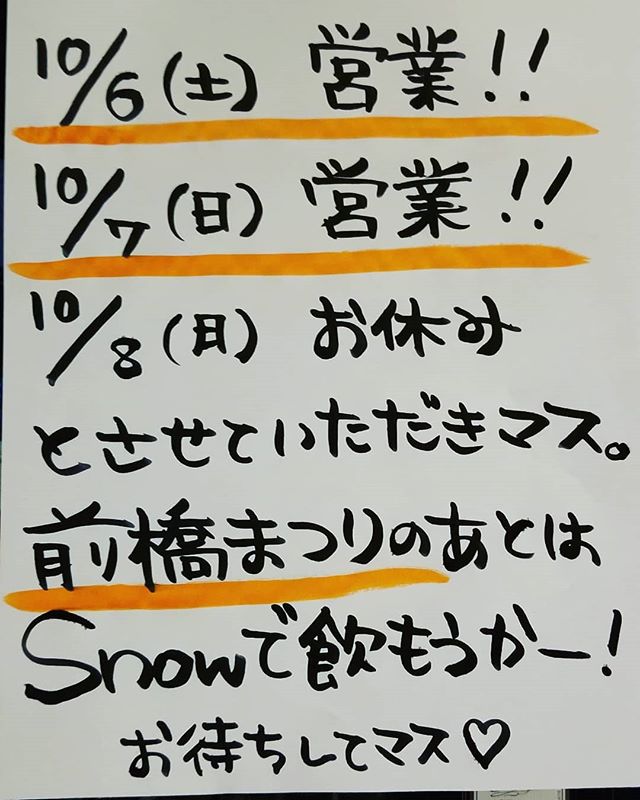 10/6(土) 営業!!
10/7(日) 営業!!
10/8(月) お休み
とさせていただきマス。
前橋まつりのあとは
Snowで飲もうかー!
お待ちしてマス♡